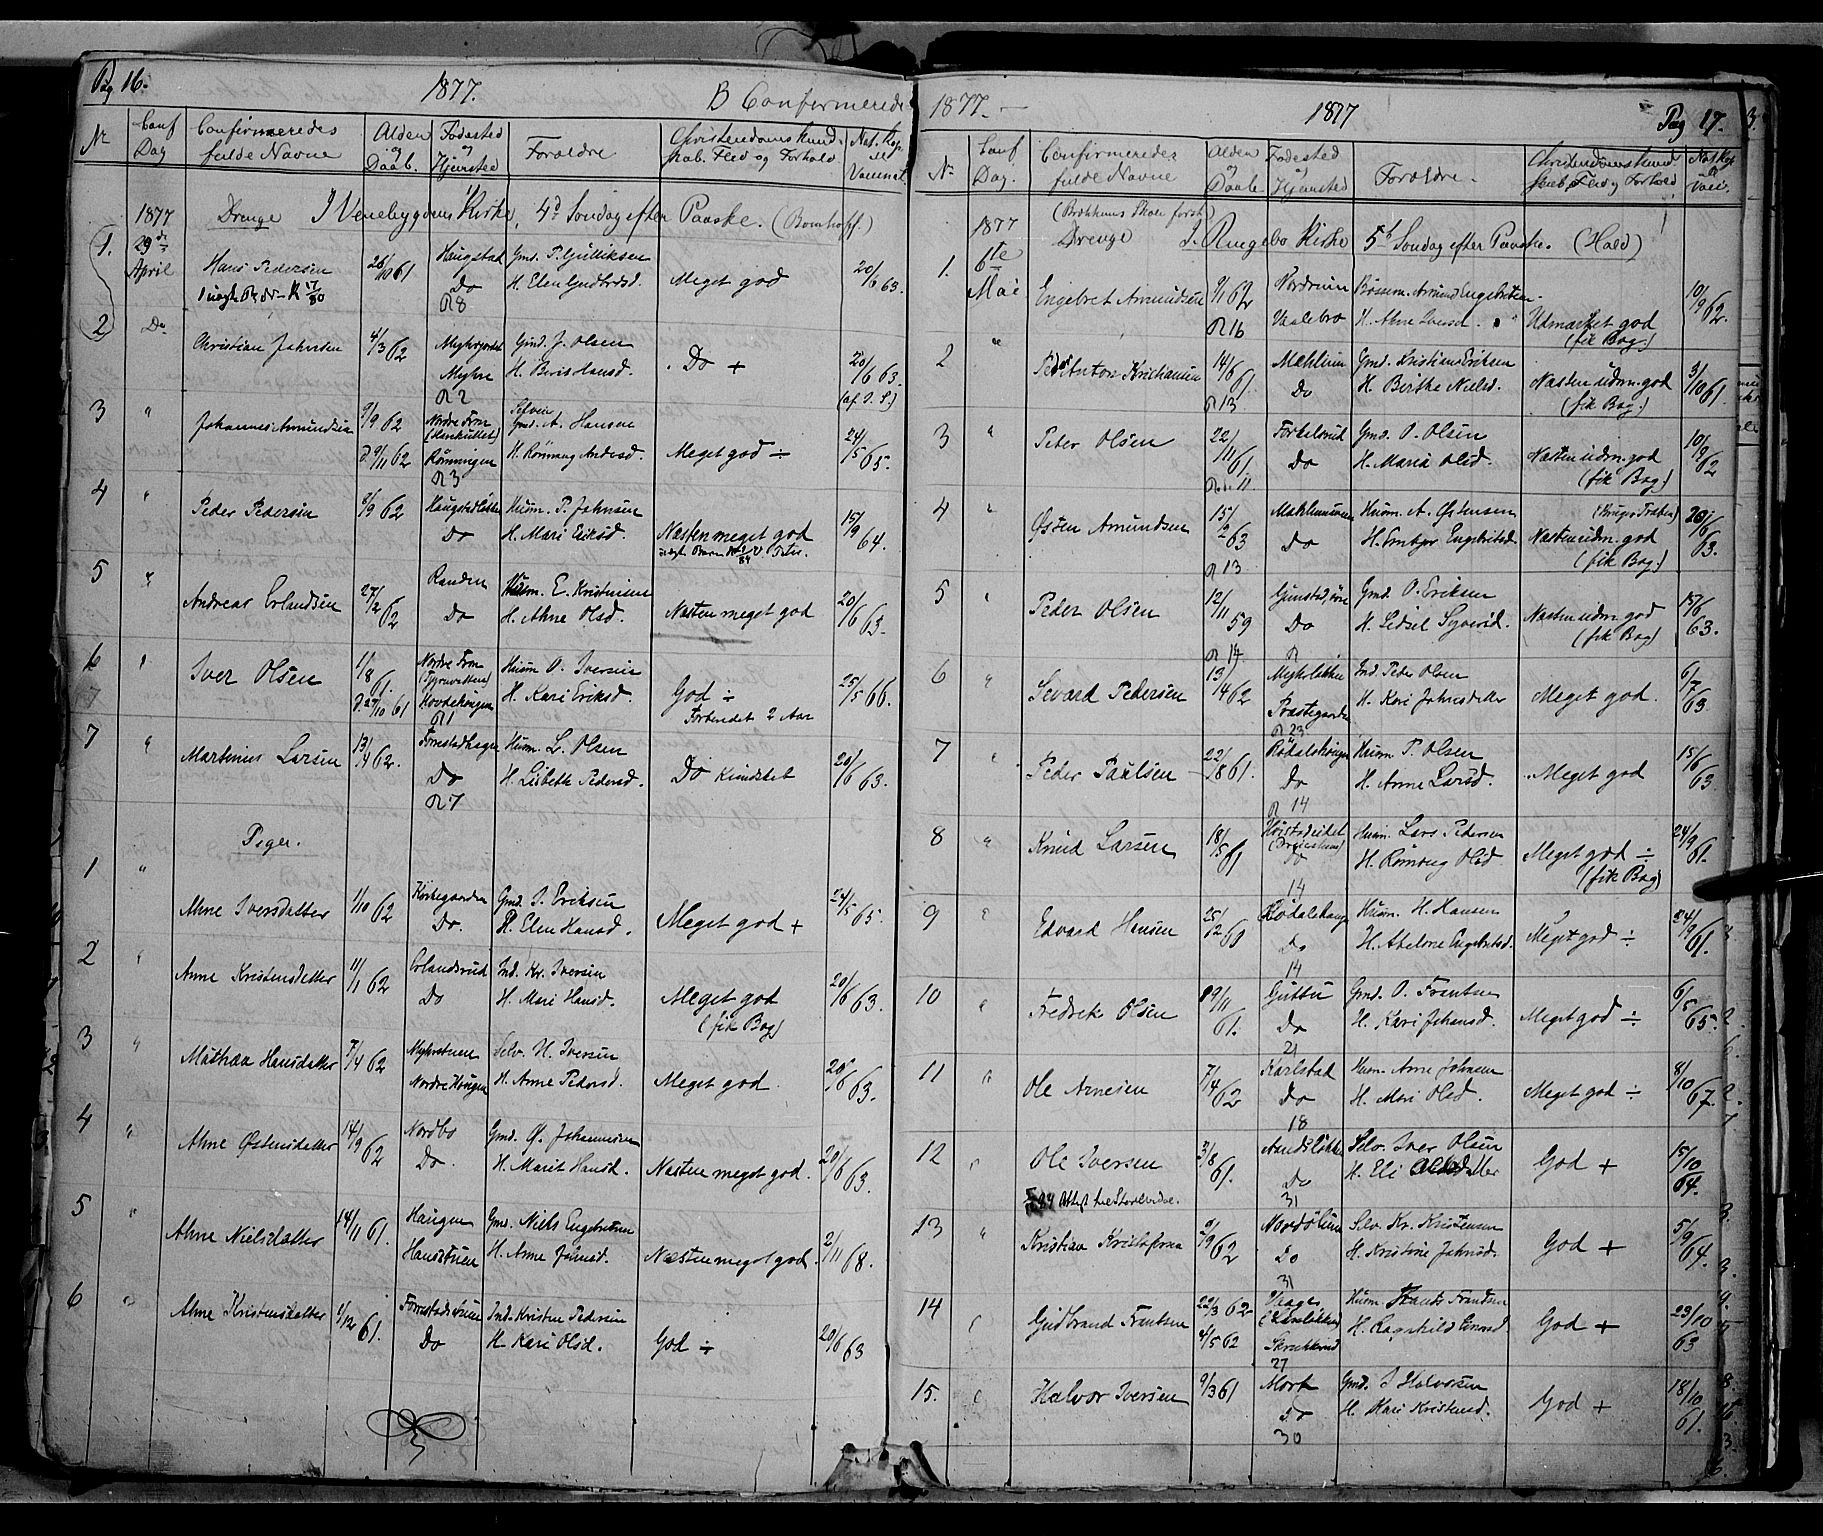 Pag 16.
1877.
B Confirmerede
Nr
Conf Dag
Confirmeredes fulde Navne
Alder og Daab.
Fødested og Hjemsted
Forældre
Christendomskundskab. Flid og Forhold.
Nat. Kop.
Vaccinat.
1877 Drenge I Venebygdens Kirke, 4de Søndag efter Paaske. (Bomhoff.)
1. 29de April Hans Pedersen 26/10 61 Haugstad Do R 8 Gmd. P. Gulliksen H. Elen Gudbrdsd. Meget god 20/6 63.
2 Do Christian Johnsen 4/3 62 Myhre R 2 Gmd. J. Olsen H. Berit Hansd. Do + 20/6 63.
3 " Johannes Amundsen 9/9 62 d. 9/11 62 Nordre Fron Rønningen R 3 Gmd. A. Hansen H. Rønnaug Andersd. Meget god ÷ 24/5 65.
4 " Peder Pedersen 8/9 62 Haugstadløkken Do Husm. P. Johnsen H. Mari Eriksd. Næsten meget god 15/9 64.
5 " Andreas Erlandsen 27/2 62 Randen Do Husm. E. Kristensen H. Ahne Olsd. Næsten meget god 20/6 63.
6 " Iver Olsen 1/8 61. d. 27/10 61 Nordre Fron R 1 Husm O. Iversen H. Kari Eriksd. God ÷ Forberedet 2 Aar 25/5 66.
7 " Martinius Larsen 13/4 62. Do R 7 Husm. L. Olsen H. Lisbeth Pedersd. Do 20/6 63.
Piger.
1 " Ahne Iversdatter 1/10 62 Kirkegaarden Do. Gmd. I. Eriksen H. Elen Hansd. Meget god + 24/5 65.
2 " Anne Kristensdatter 11/1 62 Erlandsrud Do Ind. Kr. Iversen H. Mari Hansd. Meget god (fik Bog) 20/6 63.
3 " Mathea Hansdatter 7/4 62 Myhrstuen Nordre Haugen Selv. H. Iversen H. Anne Pedersd. Meget god 20/6 63.
4 " Ahne Østensdatter 14/9 62 Nordbo Do. Gmd. Ø. Johannesen H. Marit Hansd. Næsten meget god. 20/6 63.
5 " Ahne Nielsdatter 14/11 61. Haugen Hansstuen Gmd. Niels Engebretsen H. Anne Johnsd. Næsten meget god. 2/11 68.
6 " Ahne Kristensdatter 1/12 61. Do Ind. Kristen Pedersen H. Kari Olsd. God ÷ 20/6 63
1877. —
1877
Pag 17.
Nr.
Conf Dag.
Confirmeredes fulde Navne
Alder og Daab
Fødested og Hjemsted
Forældre.
Christendomskundskab, Flid og Forhold
Nat. Kop. Vacc.
1877 Drenge I Ringebo Kirke 5te Søndag efter Paaske. (Hald)
1. 6te Mai Engebret Amundsen 9/1 62 R 16 Nordrum Vaalebro Amund Engebretsen H. Ahne Iversd. Udmærket god (fik Bog.) 10/9 62.
2 " Peder Anton Kristiansen 14/6 61. R 13 Mæhlum Do Gmd. Kristian Eriksen H. Birthe Nielsd. Næsten udm. god (fik Bog.) 3/10 61.
3 " Peter Olsen 22/11 61. R 11 Do Gmd. O. Olsen H. Maria Olsd. Næsten udm. god (fik Bog) 10/9 62
4 " Østen Amundsen 15/2 63 R 13 Do Husm A. Østensen H. Embjør Engebretsd. Næsten udm. god (fik Bog.) 20/6 63.
5 " Peder Olsen 12/11 59 R 14 Do Gmd. O. Eriksen H. Sidsel Syverd. Næsten udm. god (fik Bog) 15/6 63.
6 " Sevard Pedersen 13/4 62 Præstegaarden R 23 Ind. Peder Olsen H. Kari Johnsdatter Meget god. 6/7 63
7 " Peder Paulsen 22/8 61. Do R 14 Husm P. Olsen H. Anne Larsd. Meget god 15/6 63
8 " Knud Larsen 18/5 61 Do 14 Husm. Lars Pedersen H. Rønnaug Olsd. Meget god ÷ (fik Bog) 24/9 61.
9 " Edvard Hansen 25/12 60 Do 14 Husm. H. Hansen H. Abelone Engebretsd. Meget god ÷ 24/9 61.
10 " Fredrik Olsen 19/11 61. Guttu Do 21 Gmd. O. Frantsen H. Kari Johansd. Meget god ÷ 6/5 65.
11 " Ole Arnesen 7/4 62 Karlstad Do 18 Husm. Arne Johnsen H. Mari Olsd. Meget god ÷ 8/10 67.
12 " Ole Iversen 3/8 61. Do 31 Selv. Iver Olsen H. Eli God + 15/10 64.
13 " Kristian Kristofersen 5/9 62 Do 31 Selv. Kr. Kristensen H. Kristine Johnsd. God + 5/9 64.
14 " Gudbrand Frantsen 22/3 62 4/5 62 27 Husm. Frands Frandsen H. Ragnhild God + 23/10 63
15. " Halvor Iversen 9/3 61 Mork Do 30 Gmd. I Halvorsen H. Kari Kristensd. God + 18/10 61.